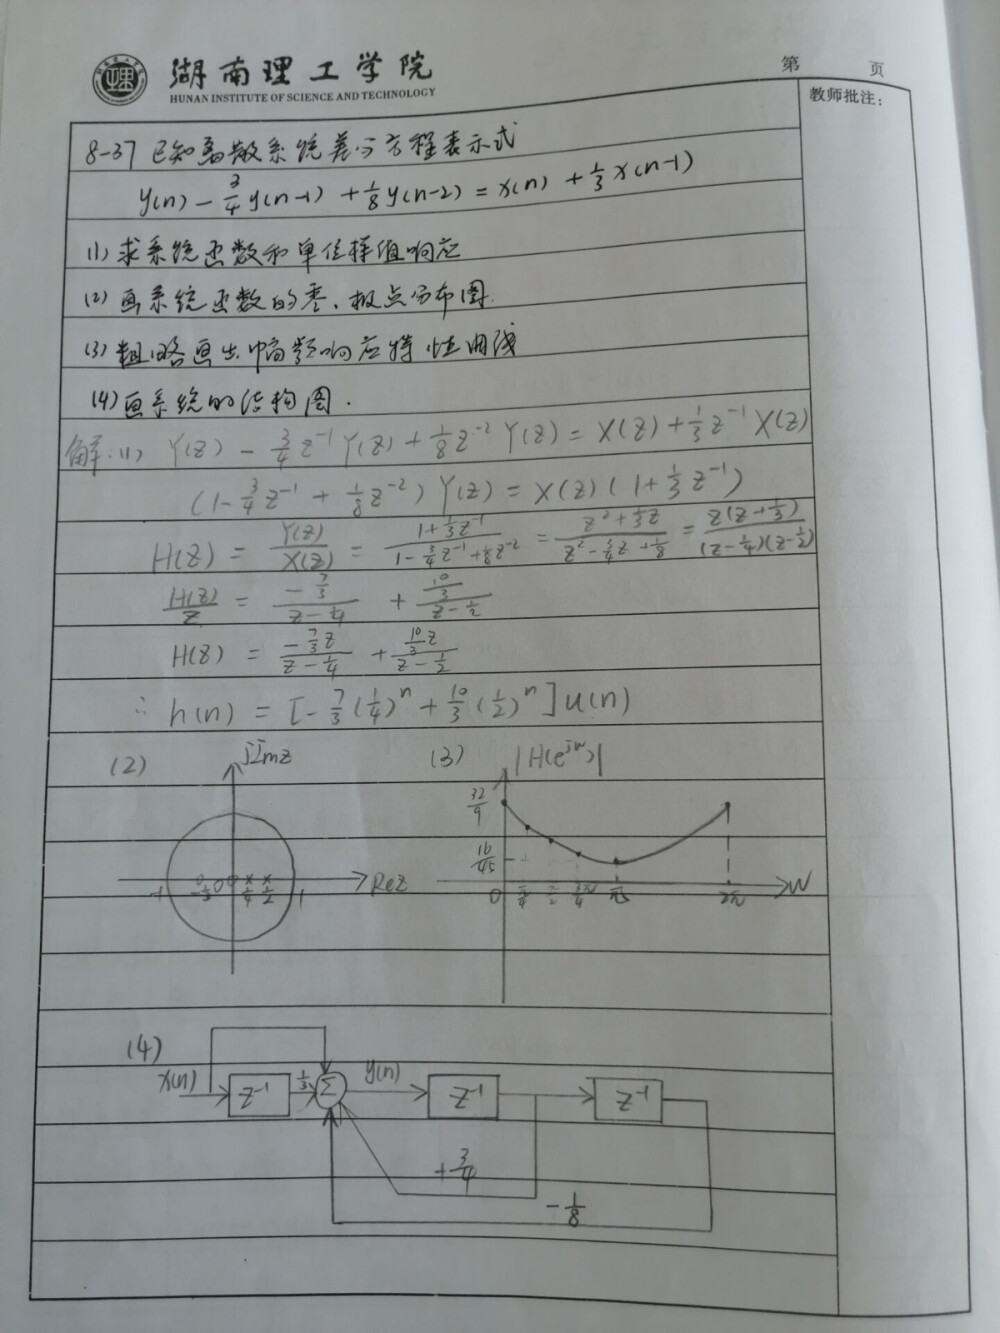 湖南理工学院
HUNAN INSTITUTE OF SCIENCE AND TECHNOLOGY
第 页
教师批注：
8-37 已知离散系统差分方程表示式
y(n) - 3/4 y(n-1) + 1/8 y(n-2) = x(n) + 1/3 x(n-1)
(1) 求系统函数和单位样值响应
(2) 画系统函数的零、极点分布图.
(3) 粗略画出幅频响应特性曲线
(4) 画系统的结构图.
解:(1) Y(z) - 3/4 z⁻¹ Y(z) + 1/8 z⁻² Y(z) = X(z) + 1/3 z⁻¹ X(z)
(1 - 3/4 z⁻¹ + 1/8 z⁻²) Y(z) = X(z) (1 + 1/3 z⁻¹)
H(z) = Y(z)/X(z) = (1 + 1/3 z⁻¹)/(1 - 3/4 z⁻¹ + 1/8 z⁻²) = (z² + 1/3 z)/(z² - 3/4 z + 1/8) = z(z + 1/3)/((z - 1/4)(z - 1/2))
H(z)/z = (-7/3)/(z - 1/4) + (10/3)/(z - 1/2)
H(z) = (-7/3 z)/(z - 1/4) + (10/3 z)/(z - 1/2)
∴ h(n) = [-7/3 (1/4)ⁿ + 10/3 (1/2)ⁿ] u(n)
(2) jImz
-1 -1/3 0 1/4 1/2 1 Rez
(3) |H(e^jw)|
32/9
16/45
0 π/4 π/2 3/4π π 2π W
(4)
x(n) z⁻¹ 1/3 Σ y(n) z⁻¹ z⁻¹
+3/4
-1/8